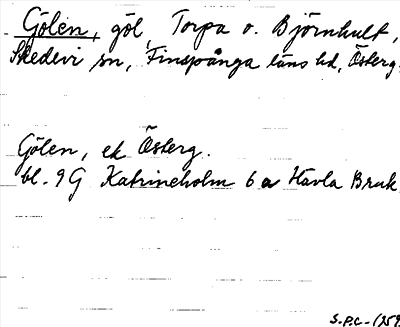 Gölen, göl, Torpa o. Björnhult,
Skedevi sn, Finspånga läns hd, Österg.
Gölen, ek Österg.
bl. 9G Katrineholm 6 a Hävla Bruk
S.P.C.-1959